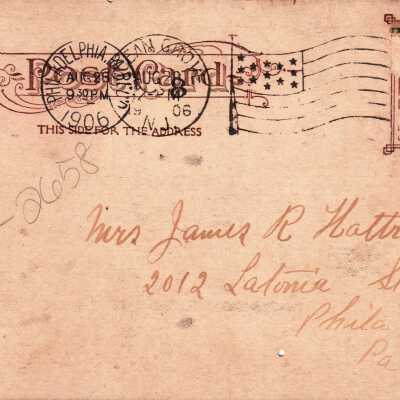 Post Card
PHILADELPHIA, PA.
AUG 26
9 30 PM
1906
OCEAN GROVE
AUG 8
06
N.J.
THIS SIDE FOR THE ADDRESS
2658
Mrs James R Hattr
2012 Latonia St
Phila
Pa